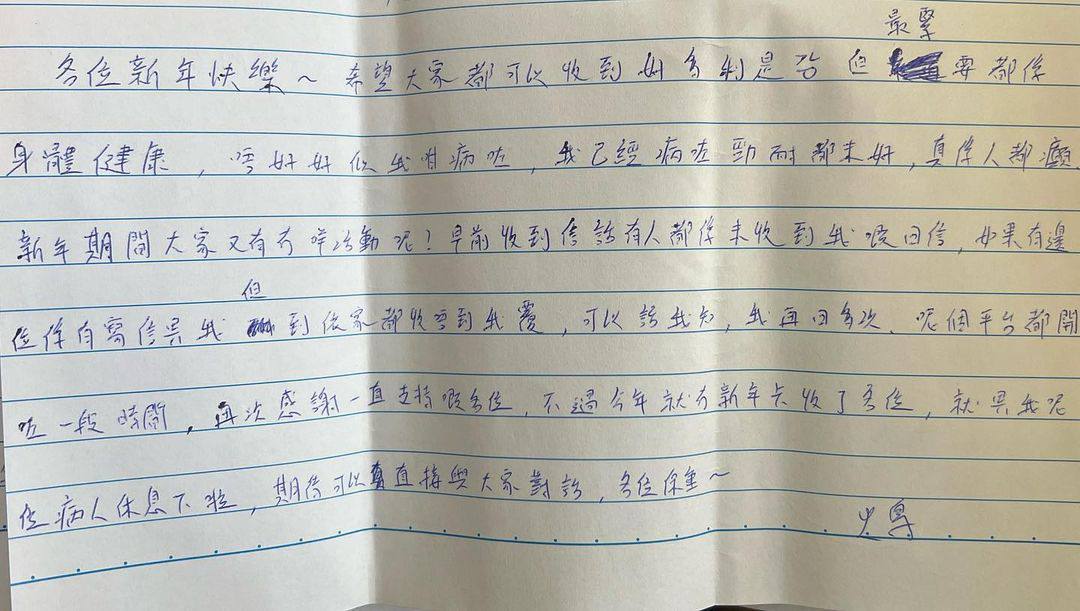 最緊
各位新年快樂~ 希望大家都可以收到好多利是啦 但要都係
身體健康,唔好好似我咁病咗,我已經病咗勁耐都未好,真係人都癲.
新年期間大家又有冇咩活動呢!早前收到信話有人都係未收到我嘅回信,如果有邊
但
位係有寫信畀我到依家都收唔到我覆,可以話我知,我再回多次.呢個平台都開
咗一段時間,再次感謝一直支持嘅各位,不過今年就冇新年卡收了各位,就畀我呢
位病人休息下啦,期待可以直接與大家對話,各位保重~